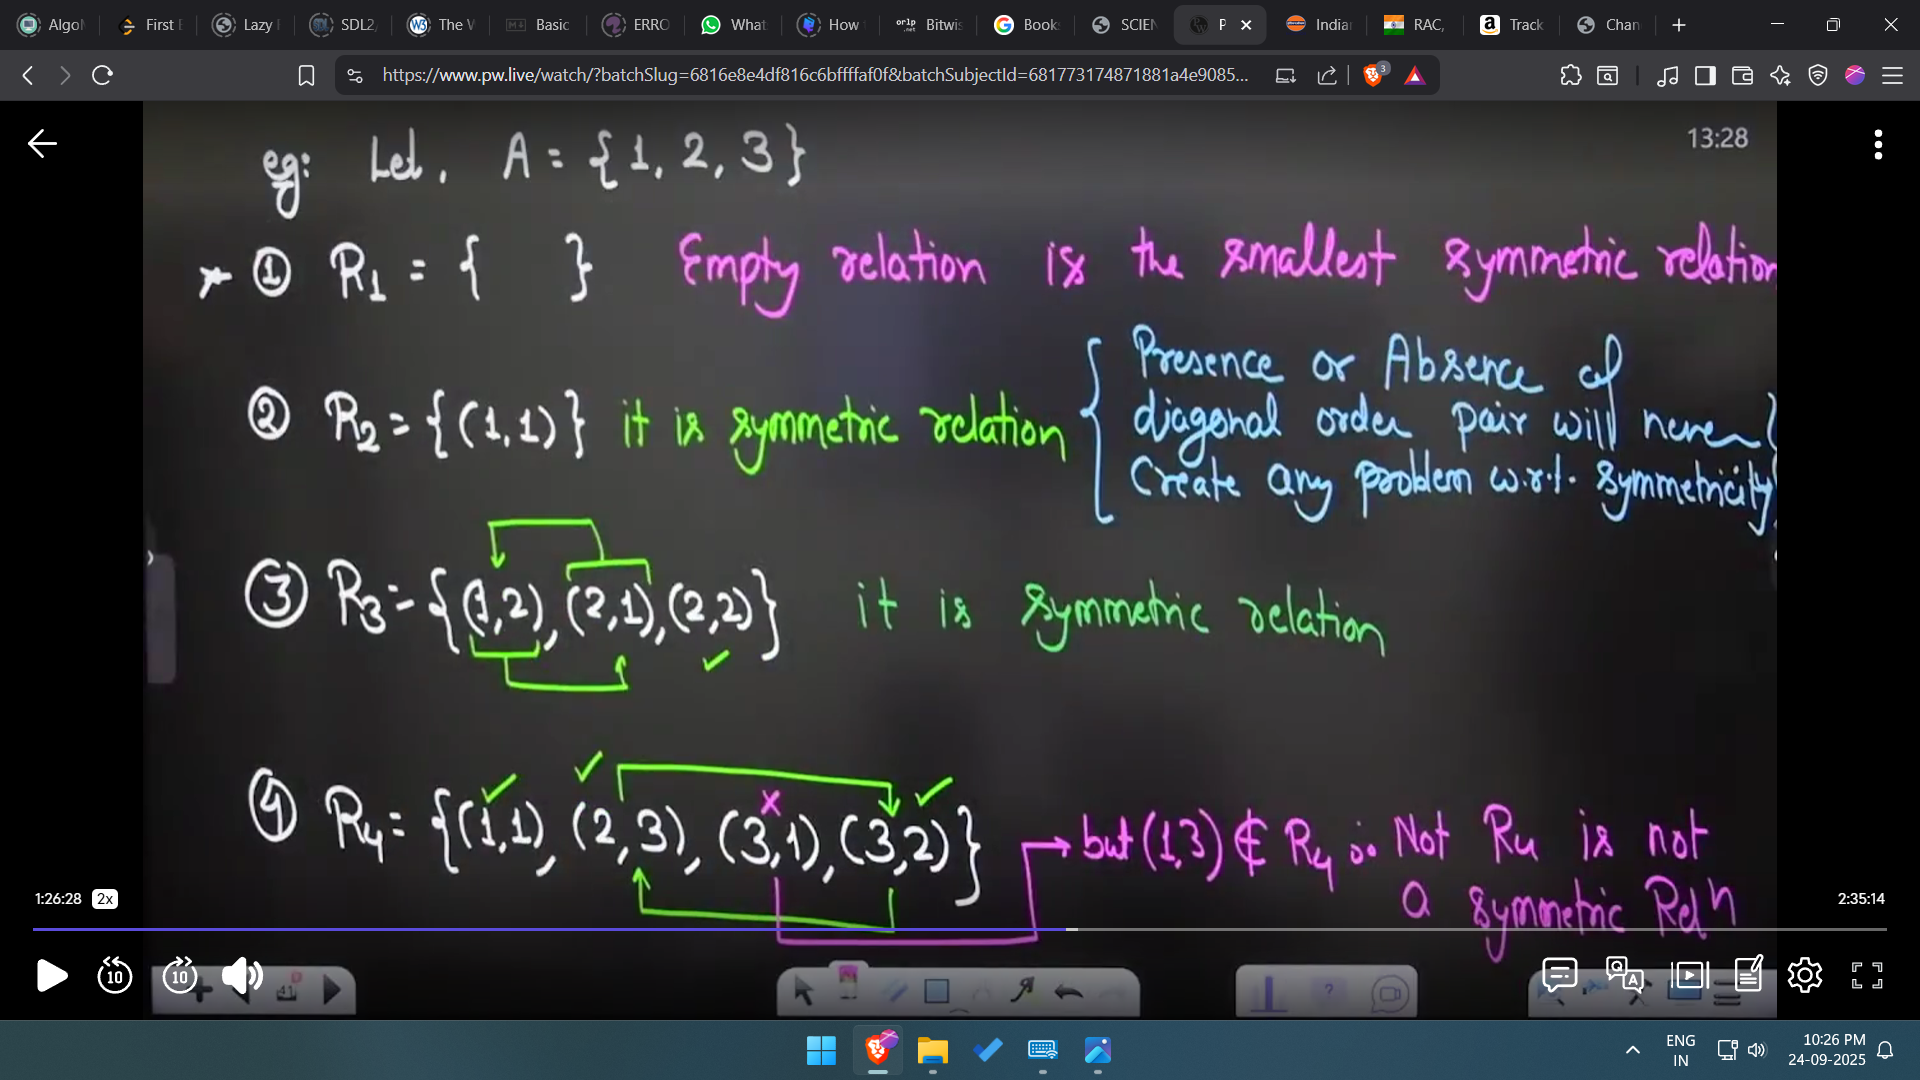 Algo
First E
Lazy I
SDL2,
The W
Basic
ERRO
What
How
Bitwis
Book
SCIEN
P
India
RAC,
Track
Chan
https://www.pw.live/watch/?batchSlug=6816e8e4df816c6bffffaf0f&batchSubjectId=681773174871881a4e9085...
3
13:28
eg: Let, A = {1, 2, 3}
① R1 = { } Empty relation is the smallest symmetric relation
② R2 = {(1,1)} it is symmetric relation
{ Presence or Absence of
diagonal order pair will never
Create any problem w.r.t. symmetricity }
③ R3 = {(1,2), (2,1), (2,2)} it is symmetric relation
④ R4 = {(1,1), (2,3), (3,1), (3,2)}
but (1,3) ∉ R4 ∴ Not R4 is not
a symmetric Reln
1:26:28 2x
2:35:14
10
10
ENG
IN
10:26 PM
24-09-2025